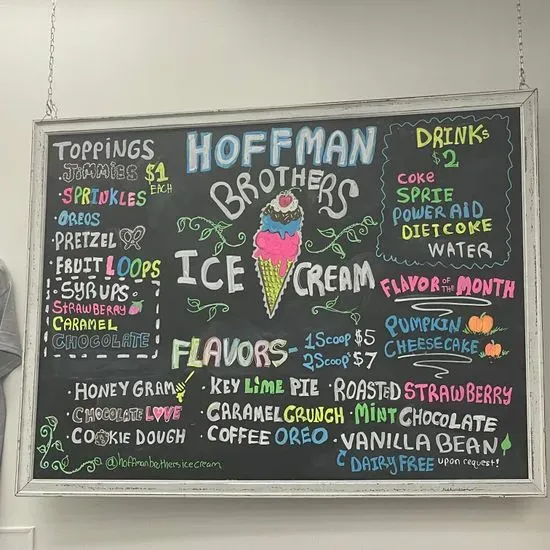 HOFFMAN
BROTHERS
ICE CREAM
TOPPINGS
$1
EACH
·JIMMIES
·SPRINKLES
·OREOS
·PRETZEL
·FRUIT LOOPS
·SYRUPS·
STRAWBERRY
CARAMEL
CHOCOLATE
DRINKS
$2
COKE
SPRIE
POWERAID
DIET COKE
WATER
FLAVOR OF THE MONTH
PUMPKIN
CHEESECAKE
FLAVORS-
1 SCOOP $5
2 SCOOP $7
·HONEY GRAM
·CHOCOLATE LOVE
·COOKIE DOUGH
·KEY LIME PIE
·CARAMEL CRUNCH
·COFFEE OREO
·ROASTED STRAWBERRY
·MINT CHOCOLATE
·VANILLA BEAN
DAIRY FREE upon request!
@hoffmanbothersicecream